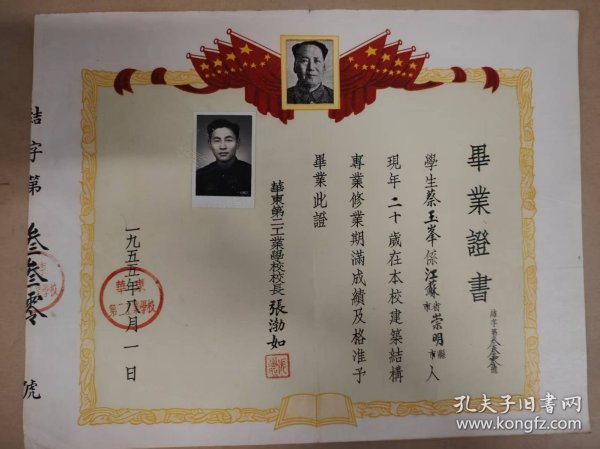 畢業證書
結字第叁叁零號
學生蔡玉峯係江蘇省市崇明縣市人
現年二十歲在本校建築結構
專業修業期滿成績及格准予
畢業此證
華東第二工業學校校長張渤如
一九五五年八月一日
華東
第二工業學校
結字第叁叁零號
孔夫子旧书网
www.kongfz.com